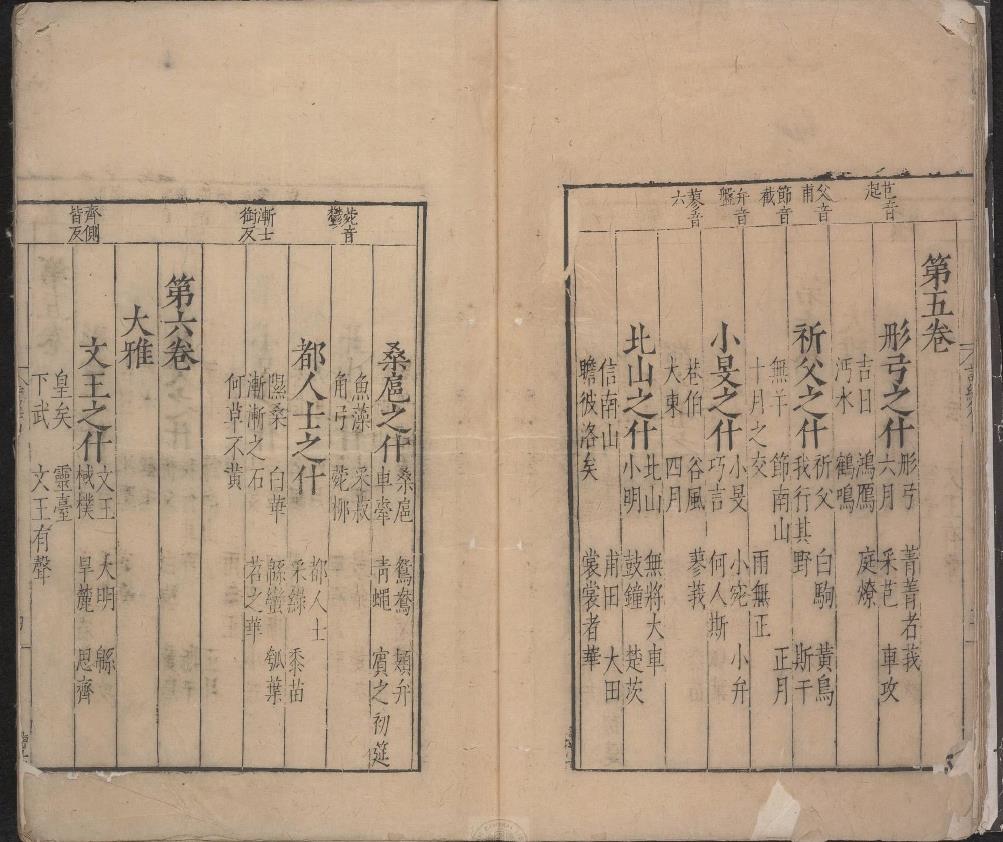 芑音起
父音甫
節音截
弁音盤
蓼音六
第五卷
彤弓之什 彤弓 菁菁者莪
六月 采芑 車攻
吉日 鴻鴈 庭燎
沔水 鶴鳴
祈父之什 祈父 白駒 黃鳥
我行其野 斯干
無羊 節南山 正月
十月之交 雨無正
小旻之什 小旻 小宛 小弁
巧言 何人斯
巷伯 谷風 蓼莪
大東 四月
北山之什 北山 無將大車
小明 鼓鐘 楚茨
信南山 甫田 大田
瞻彼洛矣 裳裳者華
菀音鬱
漸士銜反
齊側皆反
桑扈之什 桑扈 鴛鴦 頍弁
車舝 青蠅 賓之初筵
魚藻 采菽
角弓 菀柳
都人士之什 都人士
采綠 黍苗
隰桑 白華 緜蠻 瓠葉
漸漸之石 苕之華
何草不黃
第六卷
大雅
文王之什 文王 大明 緜
棫樸 旱麓 思齊
皇矣 靈臺
下武 文王有聲